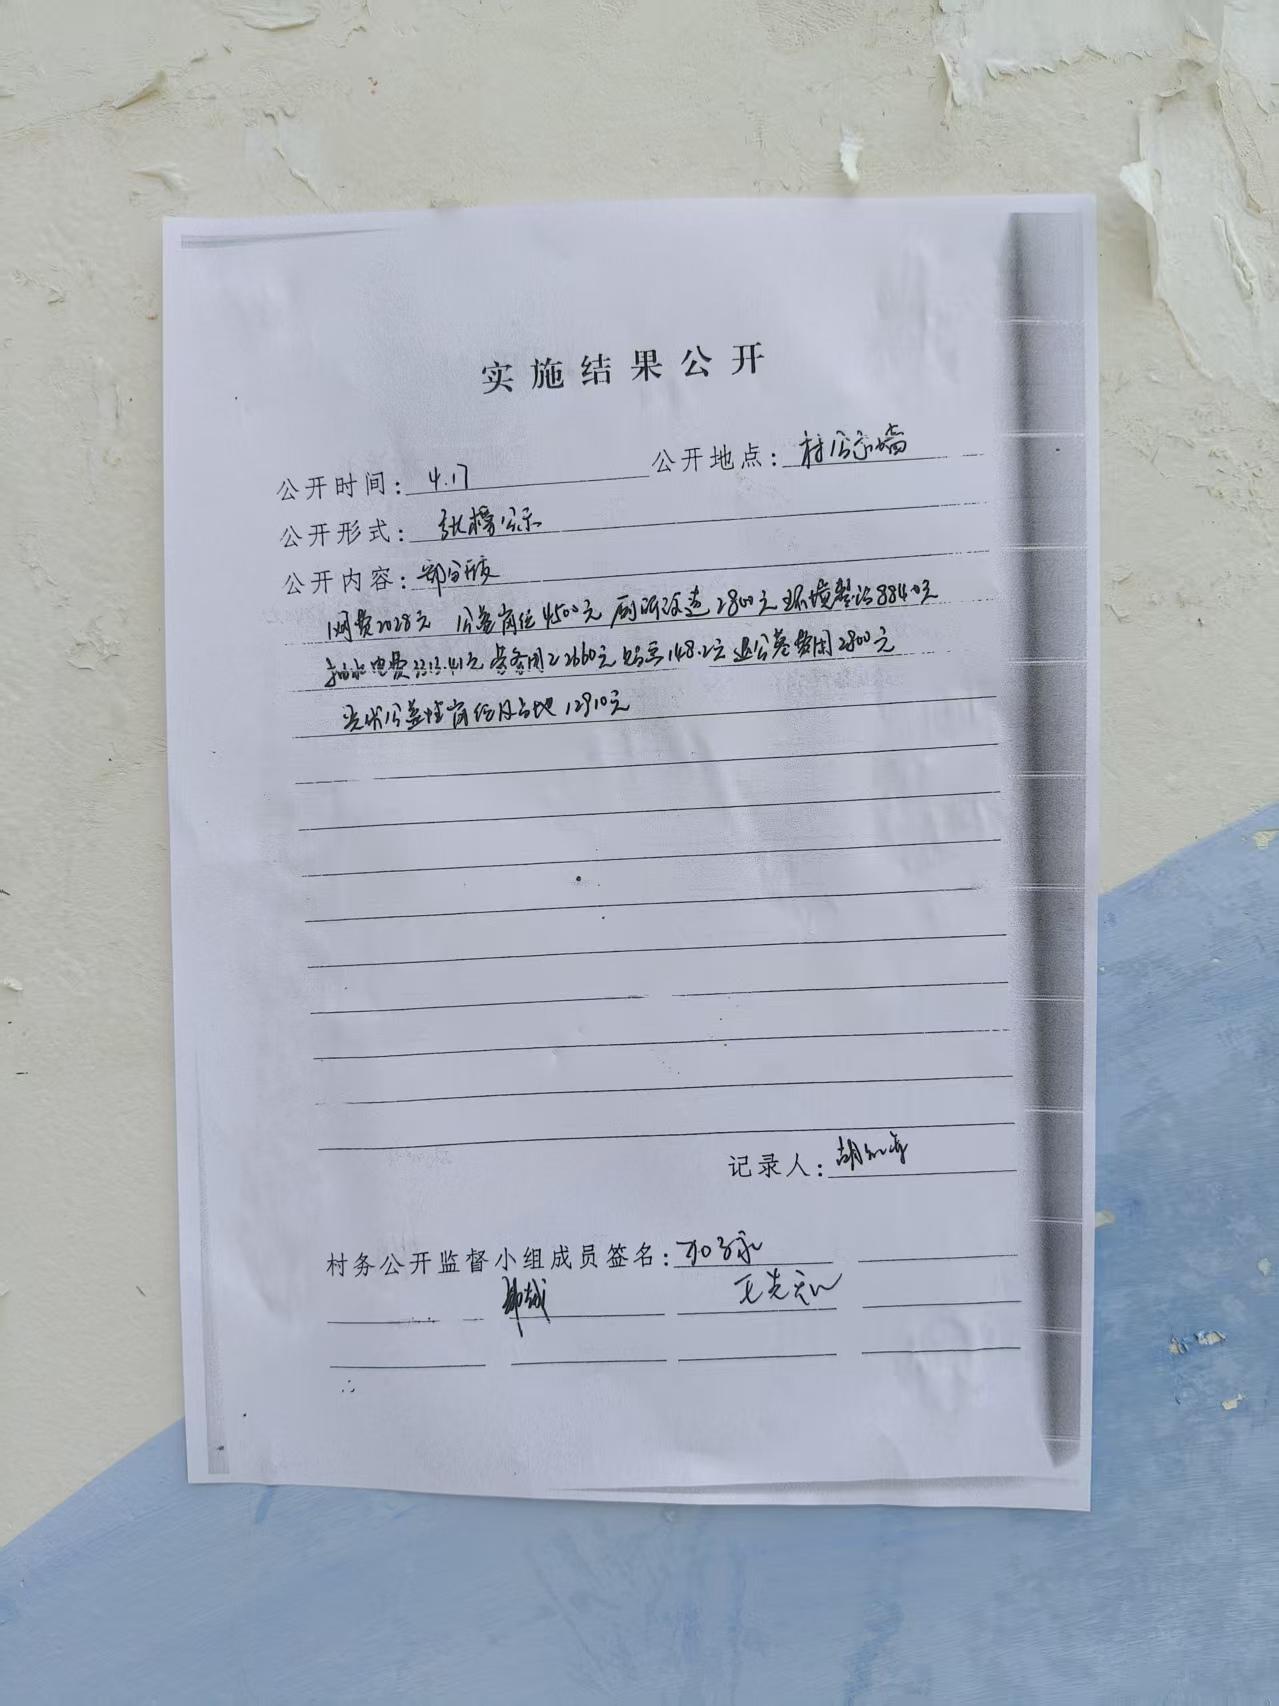 实施结果公开
公开时间：4.17 公开地点：村公示墙
公开形式：张榜公示
公开内容：部分开支
网费2028元 公益岗位4500元 厕所改造2800元 环境整治8840元
抽水电费 元 务用 22660元 148.2元 退公墓费用2800元
光伏公益性岗位及占地12910元
记录人：胡
村务公开监督小组成员签名：
王